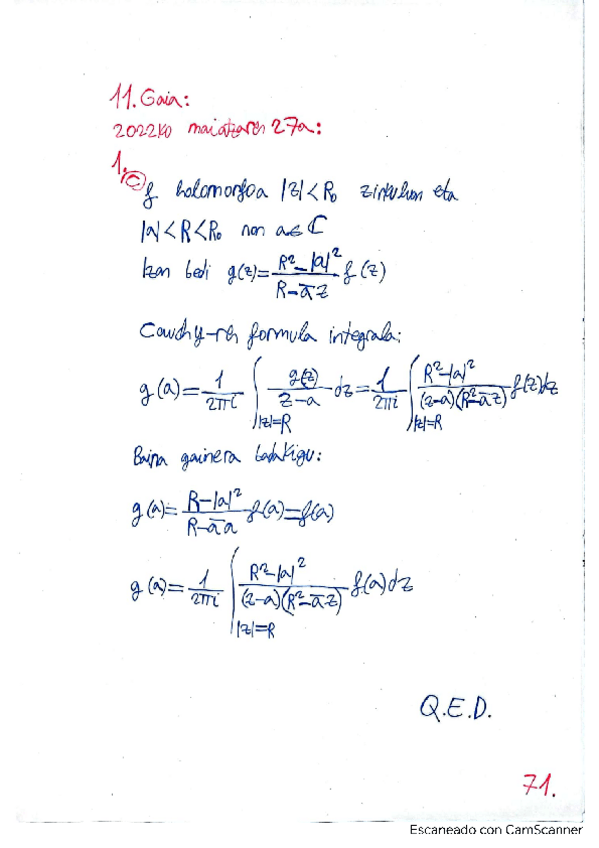 11. Gaia:
2022ko maiatzaren 27a:
1.
c) f holomorfoa |z|<R₀ zirkuluan eta
|a|<R<R₀ non a∈ℂ
Izan bedi g(z)=\frac{R²-|a|²}{R-\bar{a}z} f(z)
Cauchy-ren formula integrala:
g(a)=\frac{1}{2πi} ∫_{|z|=R} \frac{g(z)}{z-a} dz = \frac{1}{2πi} ∫_{|z|=R} \frac{R²-|a|²}{(z-a)(R²-\bar{a}z)} f(z)dz
Baina gainera badakigu:
g(a)=\frac{R-|a|²}{R-\bar{a}a} f(a)=f(a)
g(a)=\frac{1}{2πi} ∫_{|z|=R} \frac{R²-|a|²}{(z-a)(R²-\bar{a}z)} f(a)dz
Q.E.D.
71.
Escaneado con CamScanner